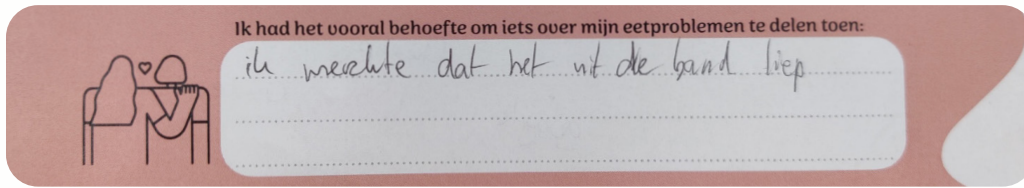 Ik had het vooral behoefte om iets over mijn eetproblemen te delen toen:
ik merekte dat het uit de band liep